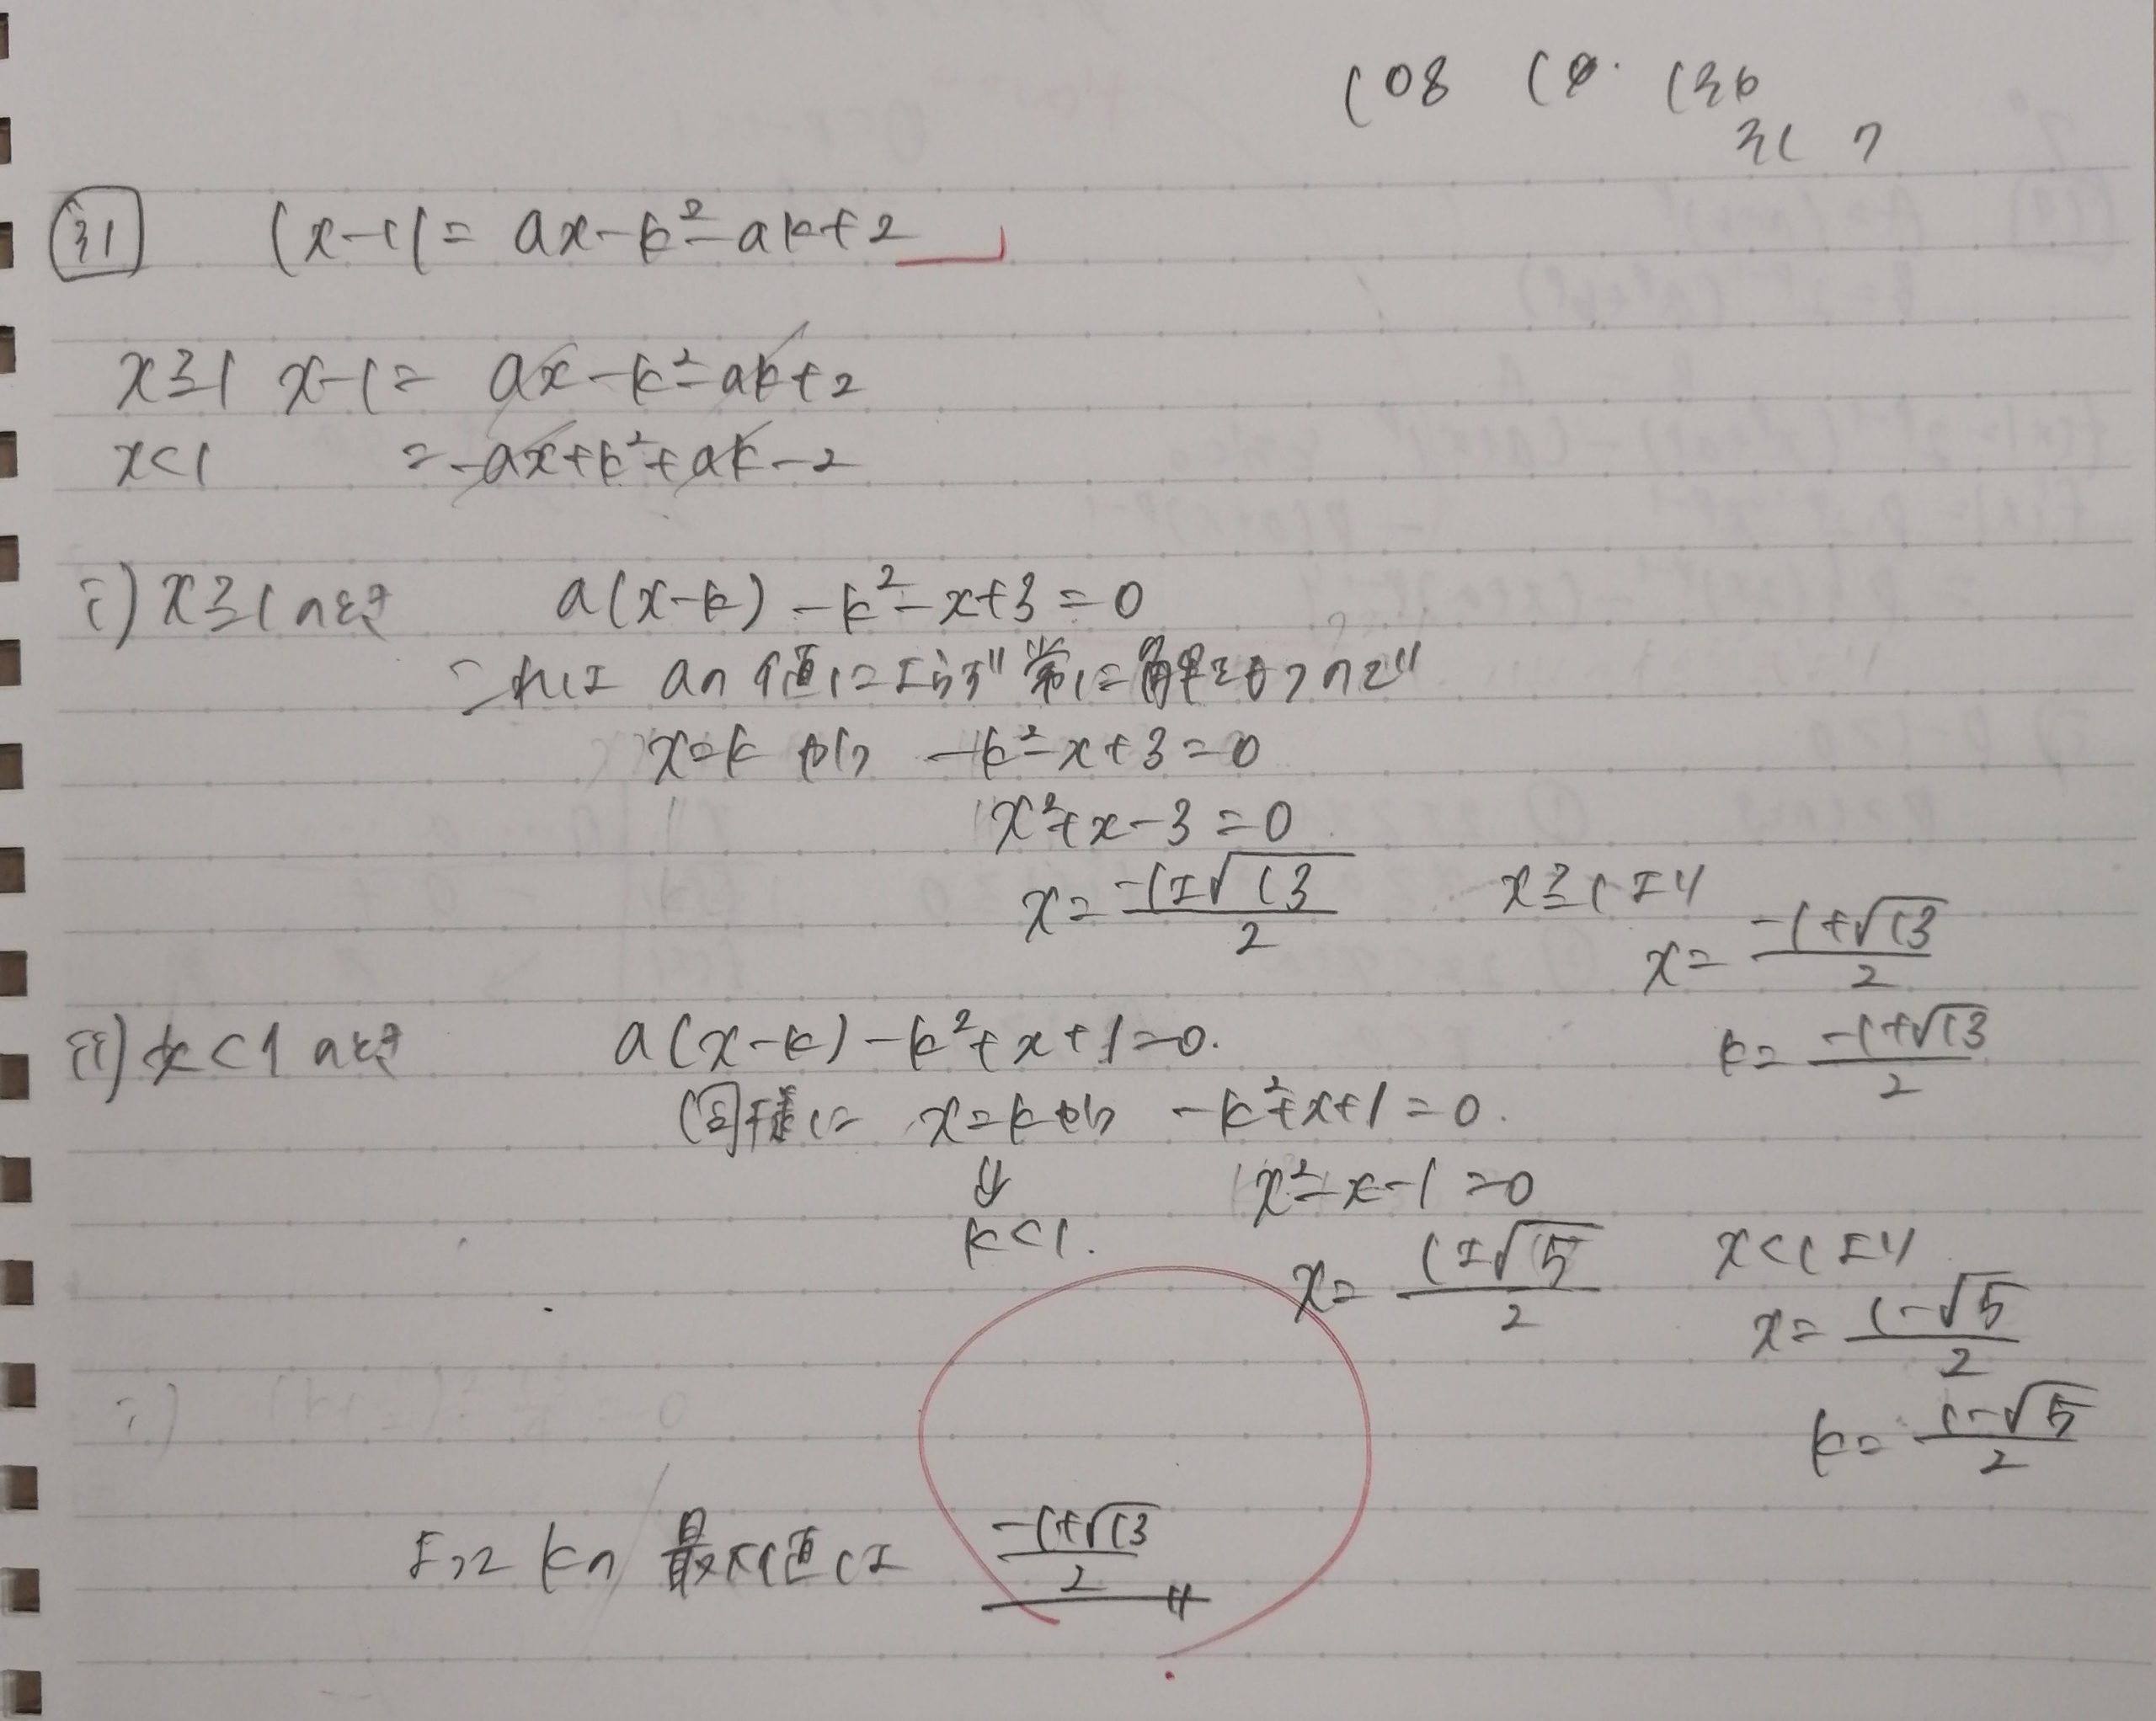 108 18. 136
31 7
31 |x-1| = ax-k²-ak+2
x≧1 x-1 = ax-k²-ak+2
x<1 = -ax+k²+ak-2
i) x≧1のとき a(x-k)-k²-x+3=0
これは aの値によらず常に解をもつので
x=k かつ -k²-x+3=0
x²+x-3=0
x= (-1±√13)/2 x≧1より
x= (-1+√13)/2
k= (-1+√13)/2
ii) x<1のとき a(x-k)-k²+x+1=0.
同様に x=kかつ -k²+x+1=0.
⇓ x²-x-1=0
k<1.
x= (1±√5)/2 x<1より
x= (1-√5)/2
k= (1-√5)/2
よって kの最大値は (-1+√13)/2 〃